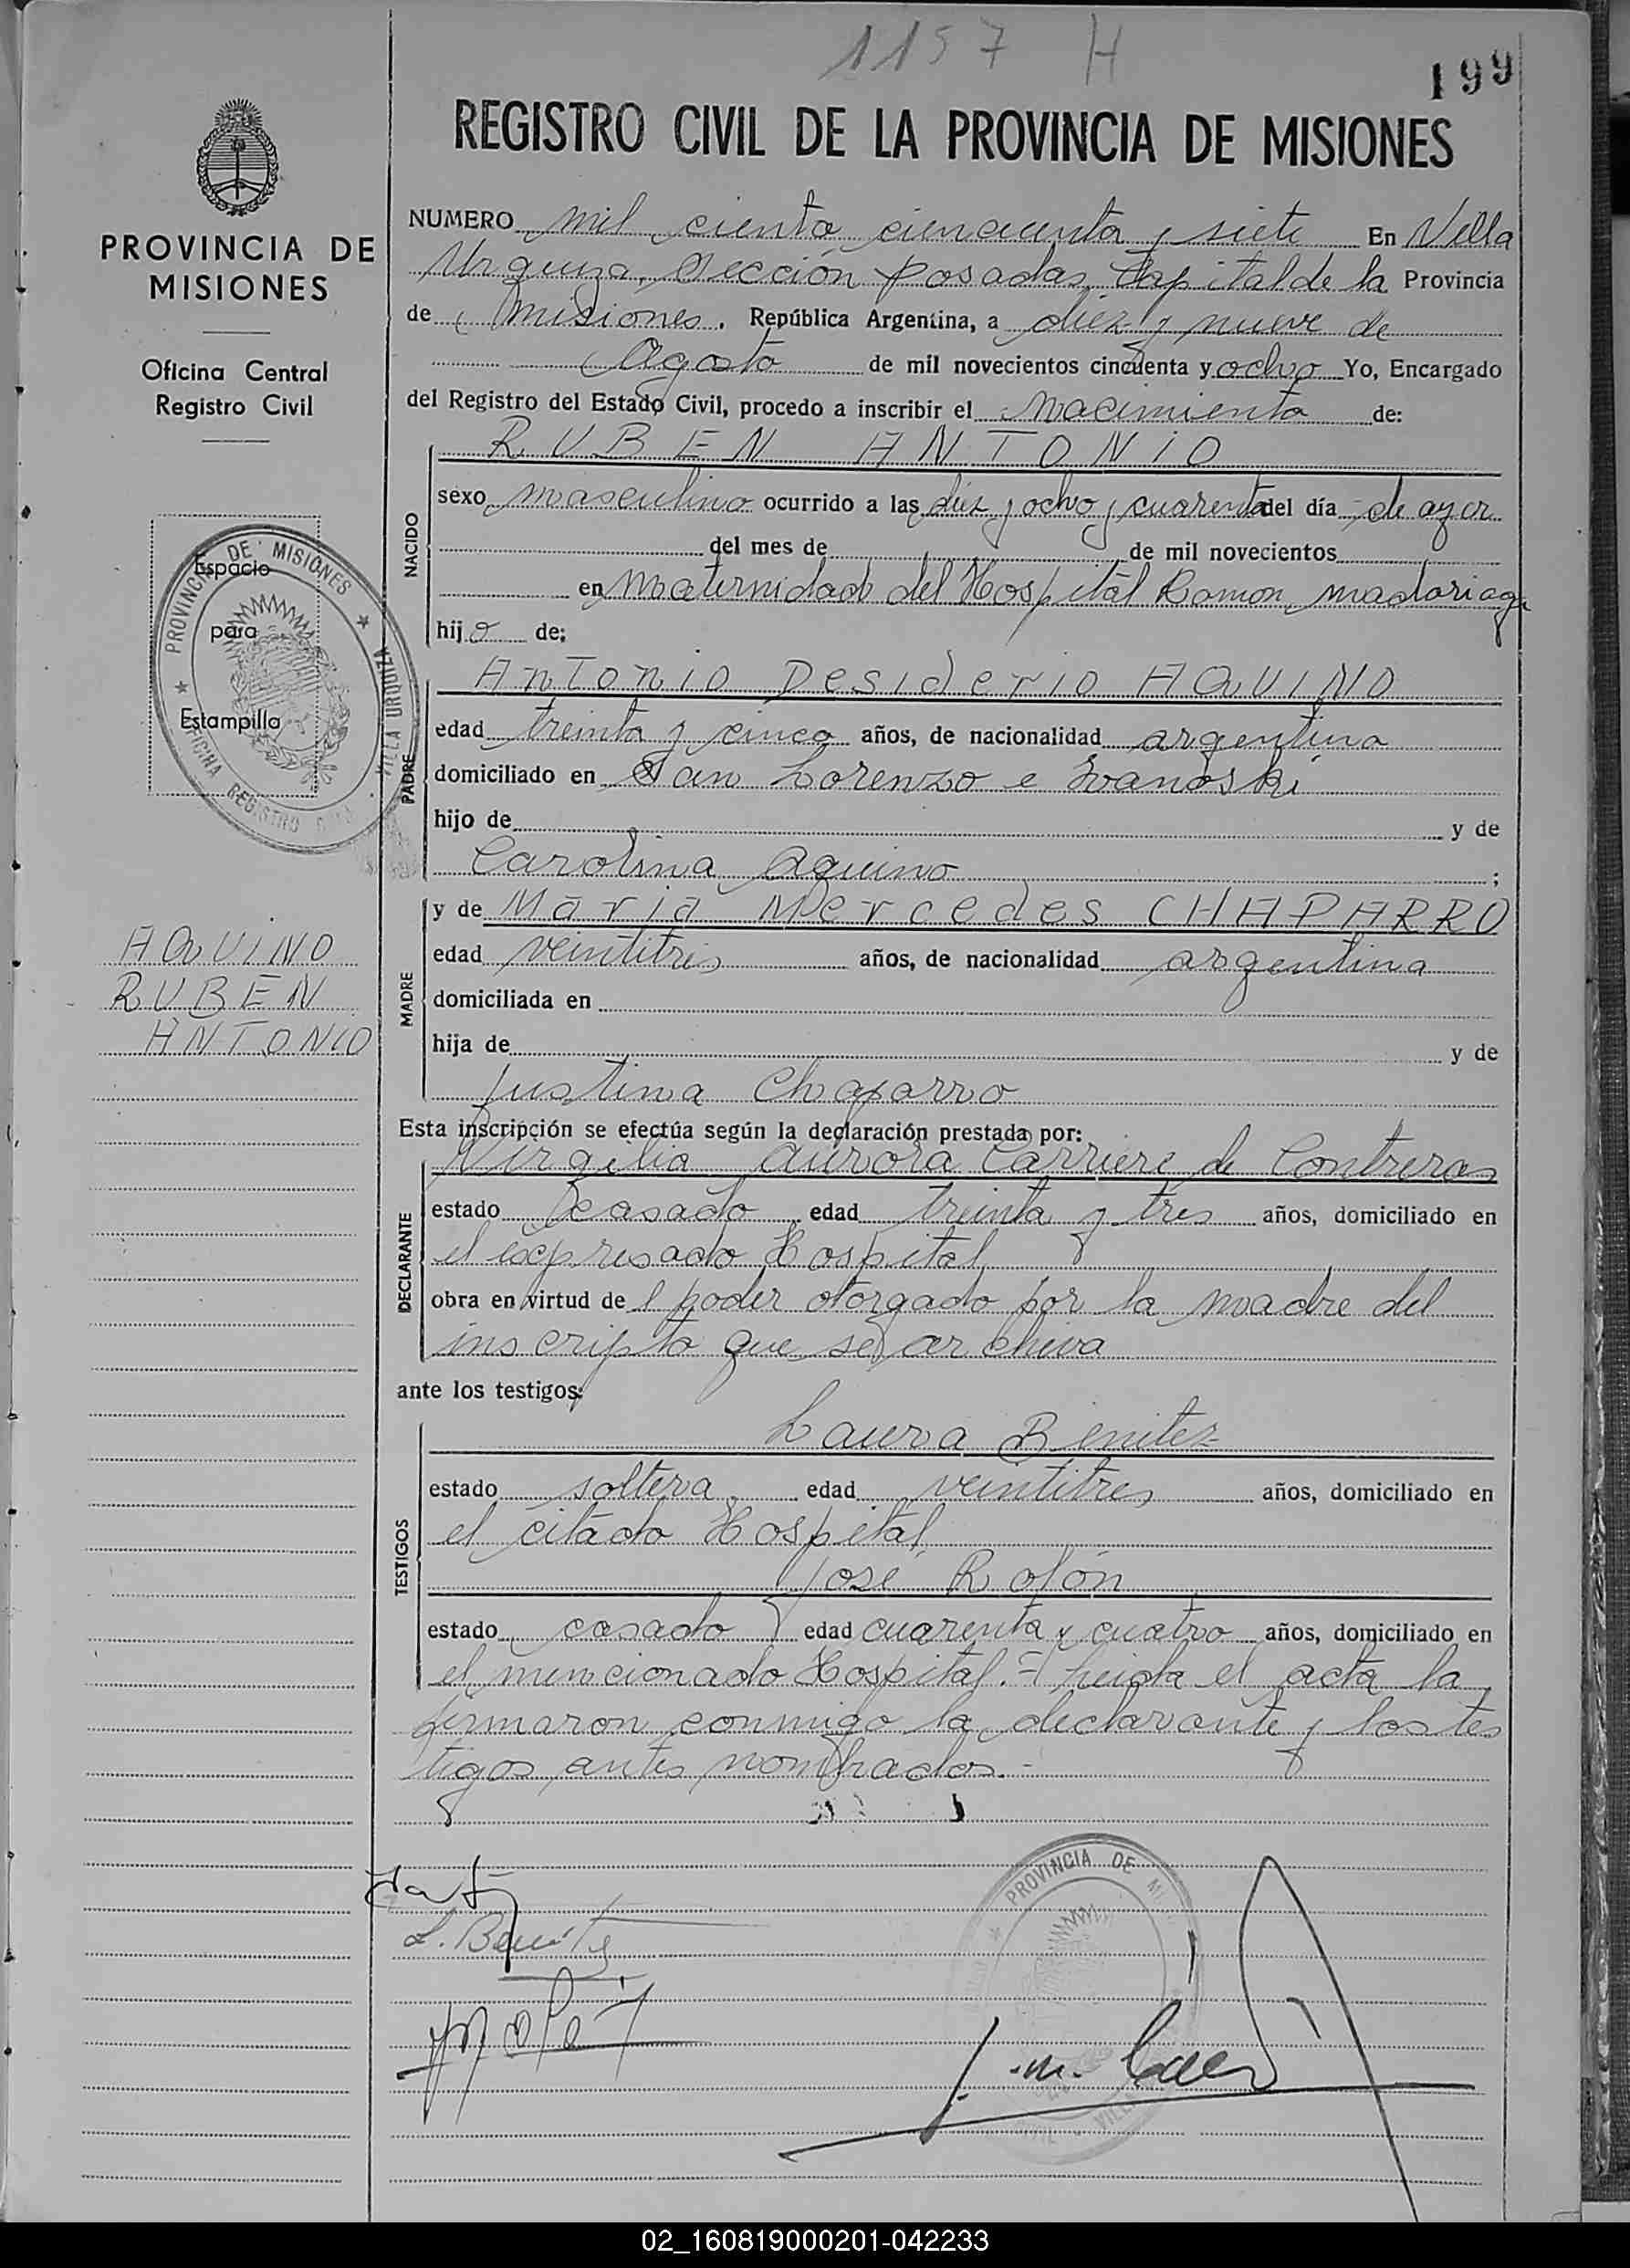 1157 H
199
REGISTRO CIVIL DE LA PROVINCIA DE MISIONES
PROVINCIA DE
MISIONES
Oficina Central
Registro Civil
Espacio
para
Estampilla
PROVINCIA DE MISIONES * VILLA URQUIZA * OFICINA REGISTRO CIVIL
AQUINO
RUBEN
ANTONIO
NUMERO mil ciento cincuenta y siete En Villa
Urquiza, Sección Posadas, Capital de la Provincia
de Misiones. República Argentina, a diez y nueve de
Agosto de mil novecientos cincuenta y ocho Yo, Encargado
del Registro del Estado Civil, procedo a inscribir el nacimiento de:
RUBEN ANTONIO
NACIDO
sexo masculino ocurrido a las diez y ocho y cuarenta del día de ayer
del mes de de mil novecientos
en Maternidad del Hospital Ramon Madariaga
hijo de;
Antonio Desiderio AQUINO
PADRE
edad treinta y cinco años, de nacionalidad argentina
domiciliado en San Lorenzo e Ivanoski
hijo de y de
Carolina Aquino ;
y de Maria Mercedes CHAPARRO
MADRE
edad veintitres años, de nacionalidad argentina
domiciliada en
hija de y de
Justina Chaparro
Esta inscripción se efectúa según la declaración prestada por:
Virgilia Aurora Carriere de Contreras
DECLARANTE
estado casado edad treinta y tres años, domiciliado en
el expresado Hospital
obra en virtud del poder otorgado por la madre del
inscripto que se archiva
ante los testigos:
Laura Benitez
TESTIGOS
estado soltera edad veintitres años, domiciliado en
el citado Hospital
José Rolón
estado casado edad cuarenta y cuatro años, domiciliado en
el mencionado Hospital.= Leida el acta la
firmaron conmigo la declarante y los tes
tigos antes nombrados.-
PROVINCIA DE
L. Benitez
02_160819000201-042233